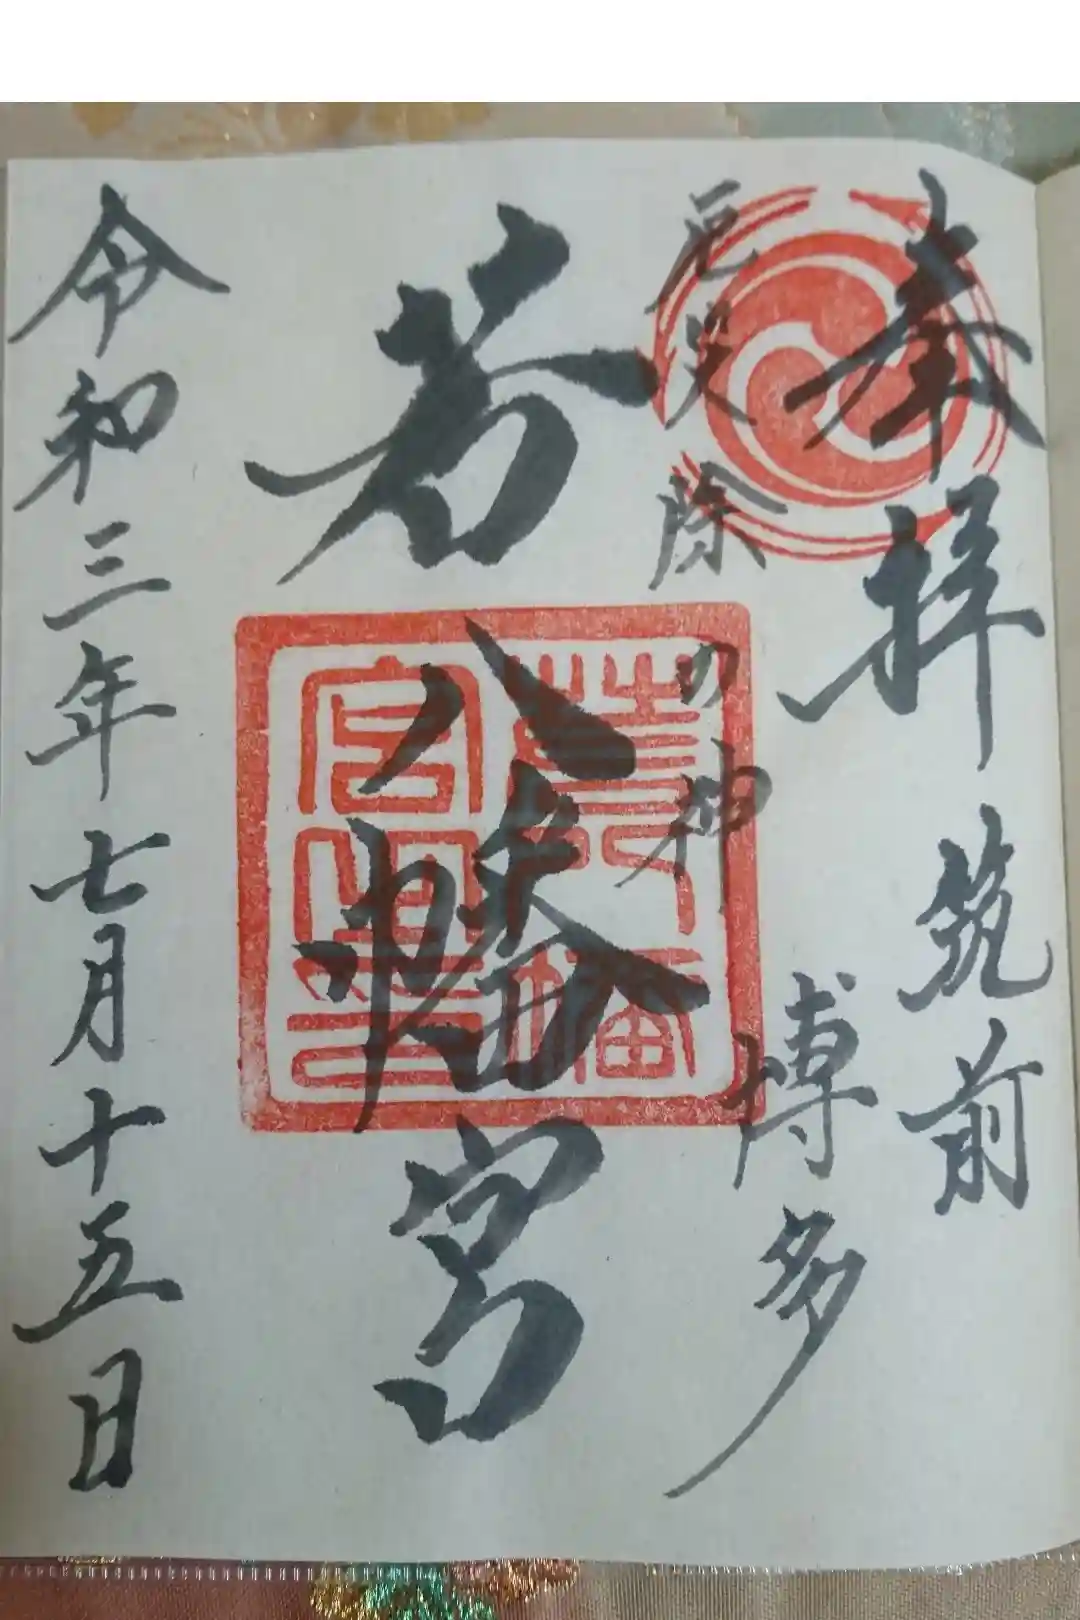 奉拝 筑前
博多
厄災除の神
若八幡宮
令和三年七月十五日